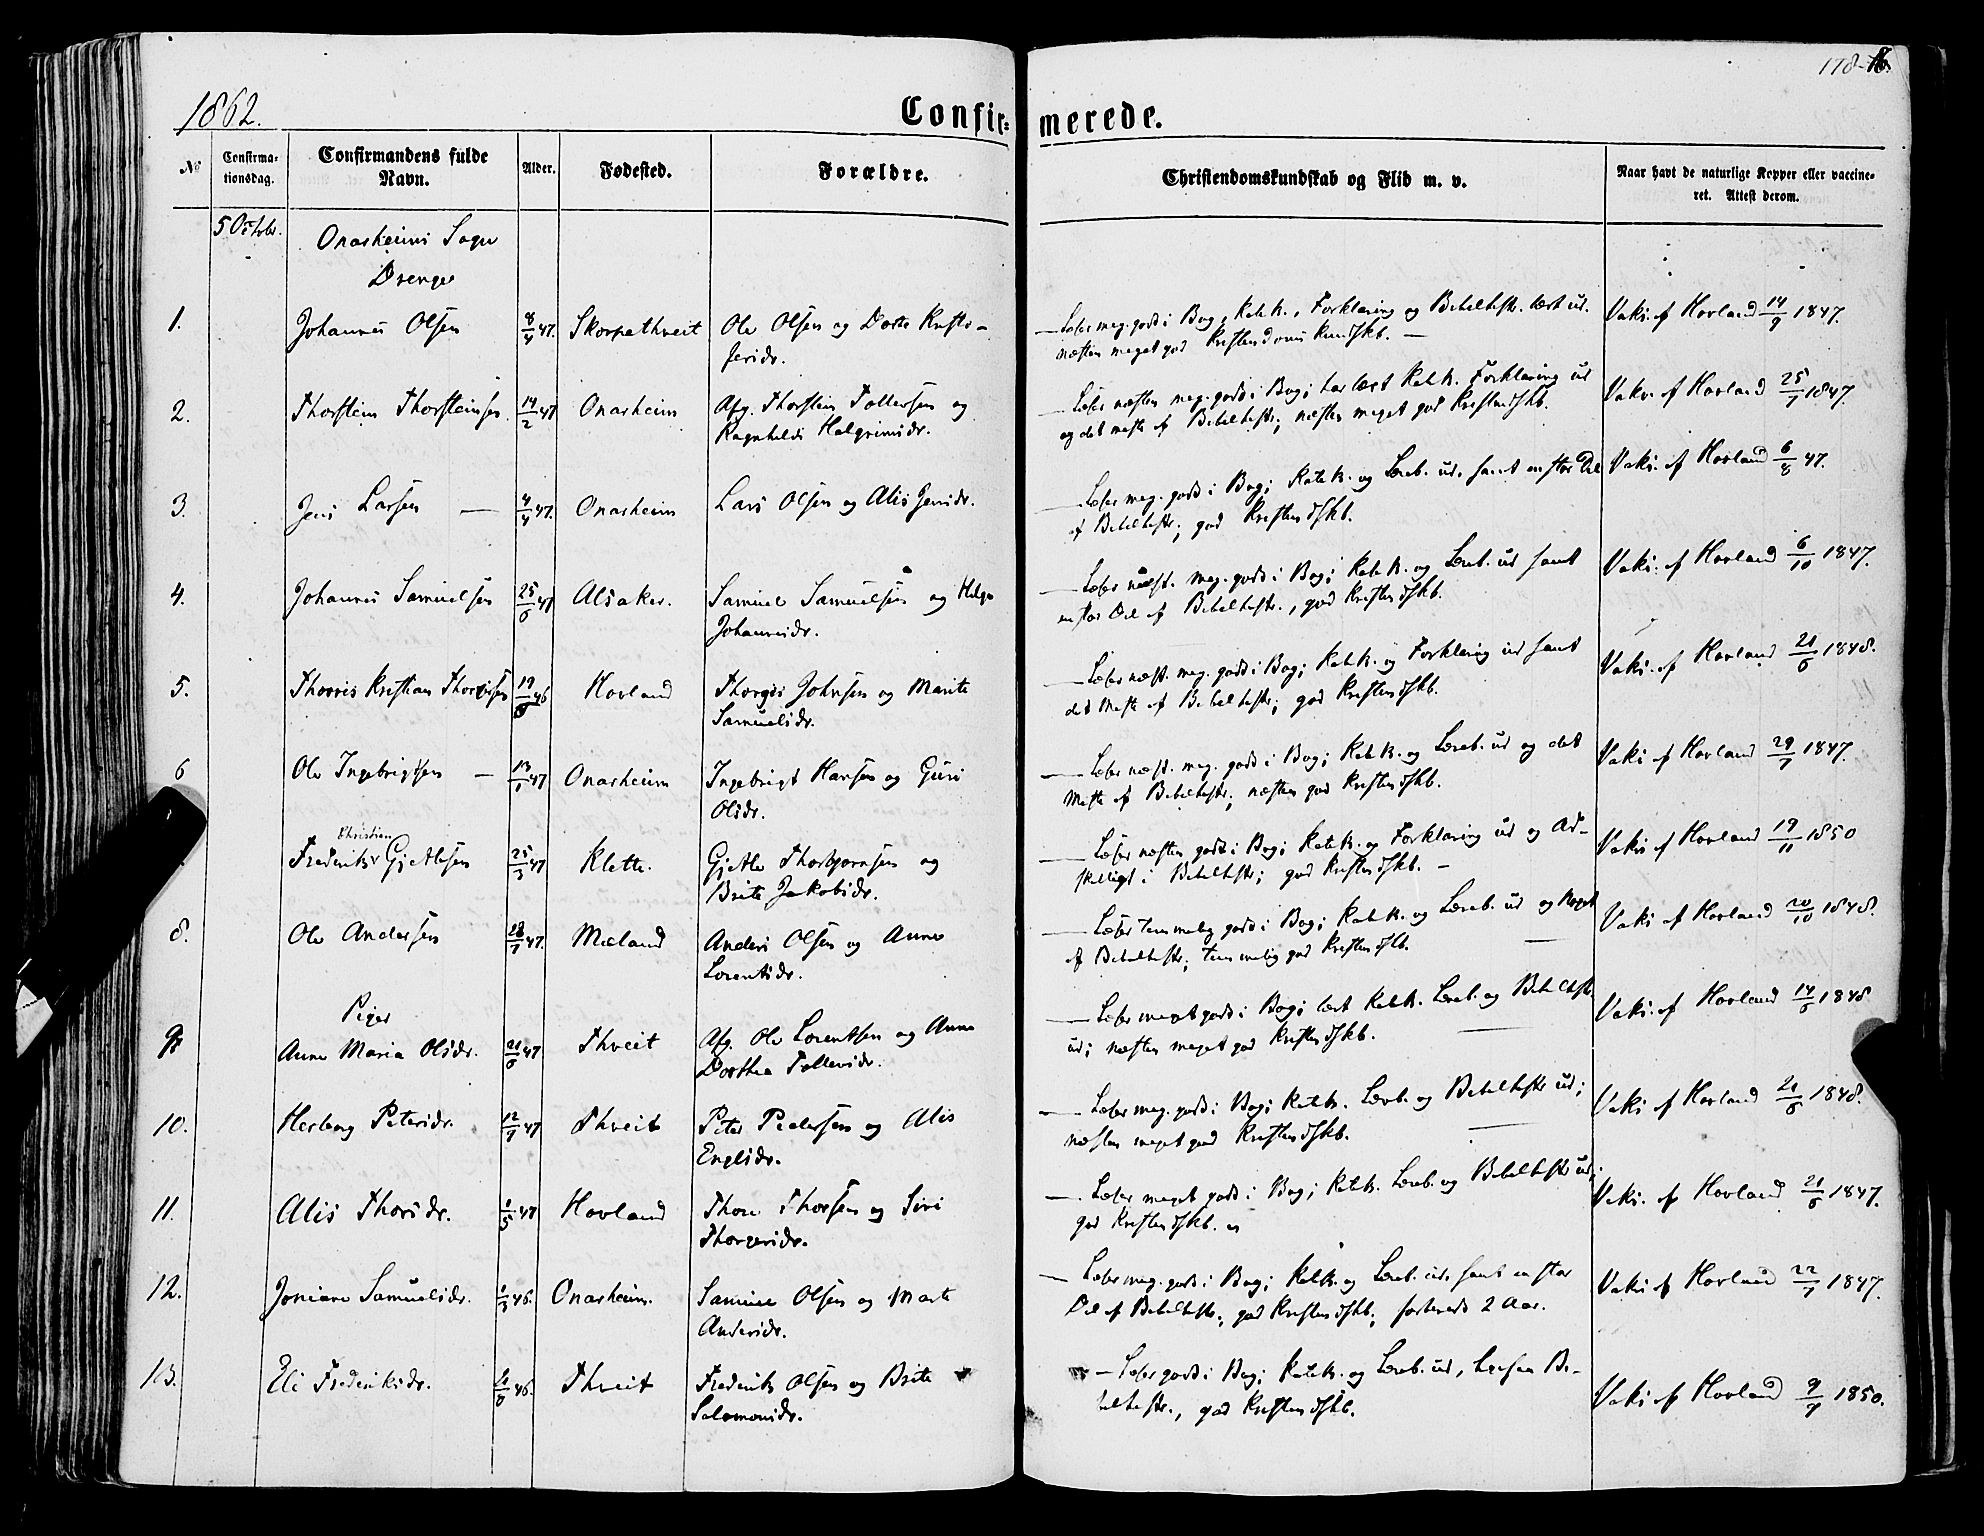 178-
1862.
Confir=
merede.
No
Confirma-
tionsdag.
Confirmandens fulde
Navn.
Alder.
Fødested.
Forældre.
Christendomskundskab og Flid m. v.
Naar havt de naturlige Kopper eller vaccine-
ret. Attest derom.
5 Octbr.
Onarheims Sogn
Drenge
1. Johannes Olsen 8/4 47. Skorpethveit Ole Olsen og Dorte Kristo-
fersdr.
— Læser meg. godt i Bog, Katk., Forklaring og Bibelhist. lært ud.
næsten meget god Kristendoms Kundskb. —
Vaks. af Hovland 14/9 1847.
2. Thorstein Thorsteinsen 14/2 47 Onarheim Afg. Thorstein Tollevsen og
Ragnhilds Halgrimsdr.
— Læser næsten meg. godt i Bog; har lært Katk. Forklaring ud
og det meste af Bibelhistr.; næsten meget god Kristendskb.
Vaks. af Hovland 25/7 1847.
3. Jens Larsen — 4/4 47. Onarheim Lars Olsen og Alis Jensdr.
— Læser meg. godt i Bog; Katek. og Læreb. ud, samt en stor Del
af Bibelhistr.; god Kristendskb.
Vaks. af Hovland 6/8 47.
4. Johannes Samuelsen 25/6 47 Alsaker. Samuel Samuelsen og Helga
Johannesdr.
— Læser næst. meg. godt i Bog; Katek. og Læreb. ud samt
en stor Del af Bibelhistr., god Kristendskb.
Vaks. af Hovland 6/10 1847.
5. Thorris Kristian Thorgisen 19/6 46 Hovland Thorgis Johnsen og Marite
Samuelsdr.
— Læser næst. meg. godt i Bog; Katk. og Forklaring ud samt
det meste af Bibelhistr; god Kristendskb.
Vaks. af Hovland 21/6 1848.
6 Ole Ingebrigtsen — 13/1 47 Onarheim Ingebrigt Hansen og Guri
Olsdr.
— Læser næst. meg. godt i Bog; Katk. og Læreb. ud og det
Meste af Bibelhistr; næsten god Kristendskb.
Vaks af Hovland 29/7 1847.
Christian
Frederik Gjetlesen 25/3 47 Klette. Gjetle Thorbjørnsen og
Brite Jakobsdr.
— Læser næsten godt i Bog; Katk. og Forklaring ud og Ad-
skilligt i Bibelhistr; god Kristendskb. —
Vaks af Hovland 19/11 1850
8. Ole Andersen 28/7 47. Mæland Anders Olsen og Anne
Lorentsdr.
— Læser temmelig godt i Bog; Katk. og Læreb. ud og Noget
af Bibelhistr; temmelig god Kristendskb. —
Vaks af Hovland 20/10 1848.
Piger
9. Anne Maria Olsdr. 21/6 47 Thveit Afg. Ole Lorentsen og Anna
Dorthea Tollevsdr.
— Læser meget godt i Bog; lært Katek. Læreb. og Bibelhist.
ud; næsten meget god Kristendskb. —
Vaks. af Hovland 14/6 1848
10. Herborg Petersdr. 12/7 47 Thveit Peter Pedersen og Alis
Englsdr.
— Læser meg. godt i Bog; Katk. Læreb. og Bibelhistr ud;
næsten meget god Kristendskb. —
Vaks af Hovland 21/6 1848.
11. Alis Thorsdr. 1/5 47 Hovland Thore Thorsen og Siri
Thorgersdr.
— Læser meget godt i Bog; Katek. Læreb. og Bibelhistr ud;
god Kristendskb.
Vaks. af Hovland 21/6 1847.
12. Joniane Samuelsdr. 1/3 46. Onarheim. Samuel Olsen og Marte
Andersdr.
— Læser meg. godt i Bog; Katk. og Læreb. ud, samt en stor
Del af Bibelhistr.; god Kristendskb; forberedt 2 Aar.
Vaks af Hovland 22/7 1847.
13. Eli Frederiksdr. 46. Thveit Frederik Olsen og Brite
Salomonsdr.
— Læser godt i Bog; Katek. og Læreb. ud, Bi-
belhistr., god Kristendskb.
Vaks af Hovland 9/7 1850.